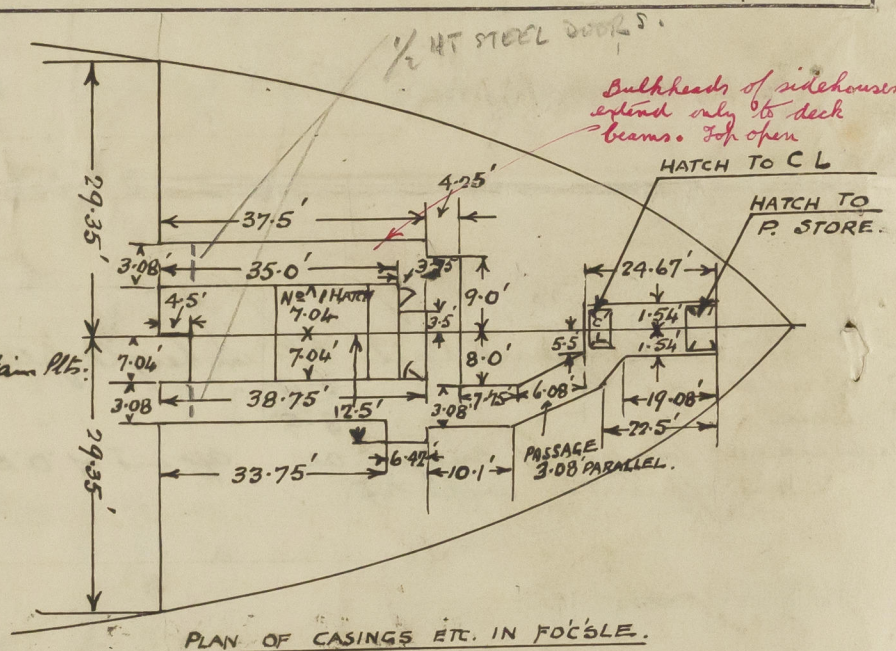 1/2 HT STEEL DOORS.
Bulkheads of sidehouses
extend only to deck
beams. Top open
HATCH TO C L
HATCH TO
P. STORE.
29.35'
37.5'
4.25'
24.67'
3.08'
35.0'
3.75'
9.0'
4.5'
No 1 HATCH
7.04
3.5'
1.54'
C
L
7.04'
7.04'
8.0'
5.5
1.54'
Plts.
3.08
38.75'
12.5'
3.08'
7.75'
6.08'
19.08'
22.5'
29.35'
33.75'
6.42'
10.1'
PASSAGE
3.08' PARALLEL.
PLAN OF CASINGS ETC. IN FO'C'SLE.